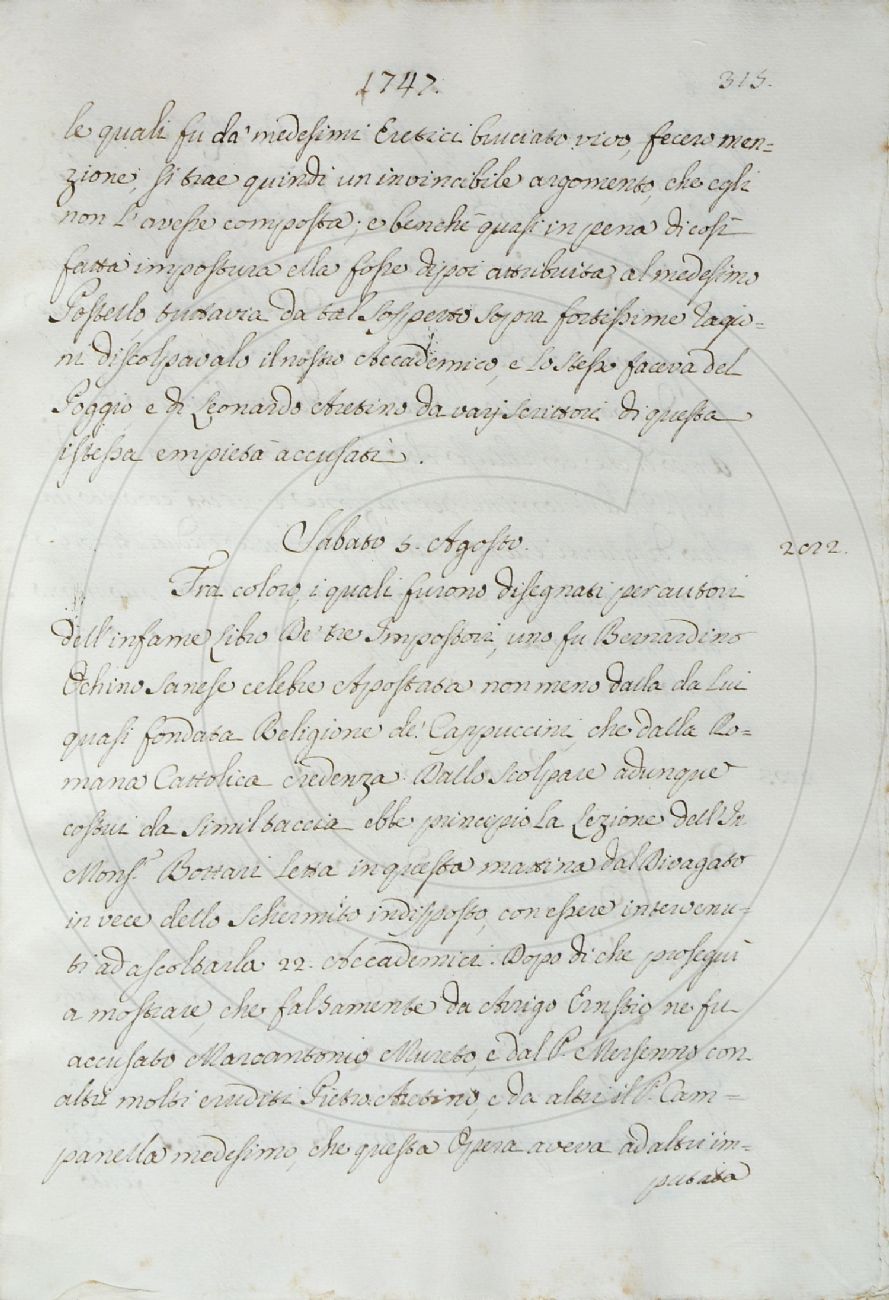 1747.
315.
le quali fu da' medesimi Eretici bruciato vivo, fecero men=
zione, si trae quindi un invincibile argomento, che egli
non l'avesse composta; e benchè quasi in pena di così
fatta impostura ella fosse dipoi attribuita al medesimo
Postello, tuttavia da tal sospetto sopra fortissime ragio=
ni discolpavalo il nostro Accademico, e lo stesso faceva del
Poggio, e di Leonardo Aretino da varj scrittori di questa
istessa empietà accusati.
Sabato 5. Agosto.
2022.
Tra coloro, i quali furono disegnati per autori
dell'infame Libro De' tre Impostori, uno fu Bernardino
Ochino Sanese celebre Apostata non meno dalla da Lui
quasi fondata Religione de' Cappuccini, che dalla Ro=
mana Cattolica credenza. Dallo scolpare adunque
costui da simil taccia ebbe principio la Lezione dell'Ill.
Mons.r Bottari letta in questa mattina dal Divagato
in vece dello Schermito indisposto, con essere intervenu=
ti ad ascoltarla 22. Accademici. Dopo di che proseguì
a mostrare, che falsamente da Arrigo Ernstio ne fu
accusato Marcantonio Mureto, e dal P. Mersenno con
altri molti eruditi Pietro Aretino, e da altri il P. Cam=
panella medesimo, che questa Opera aveva ad altri im=
putata